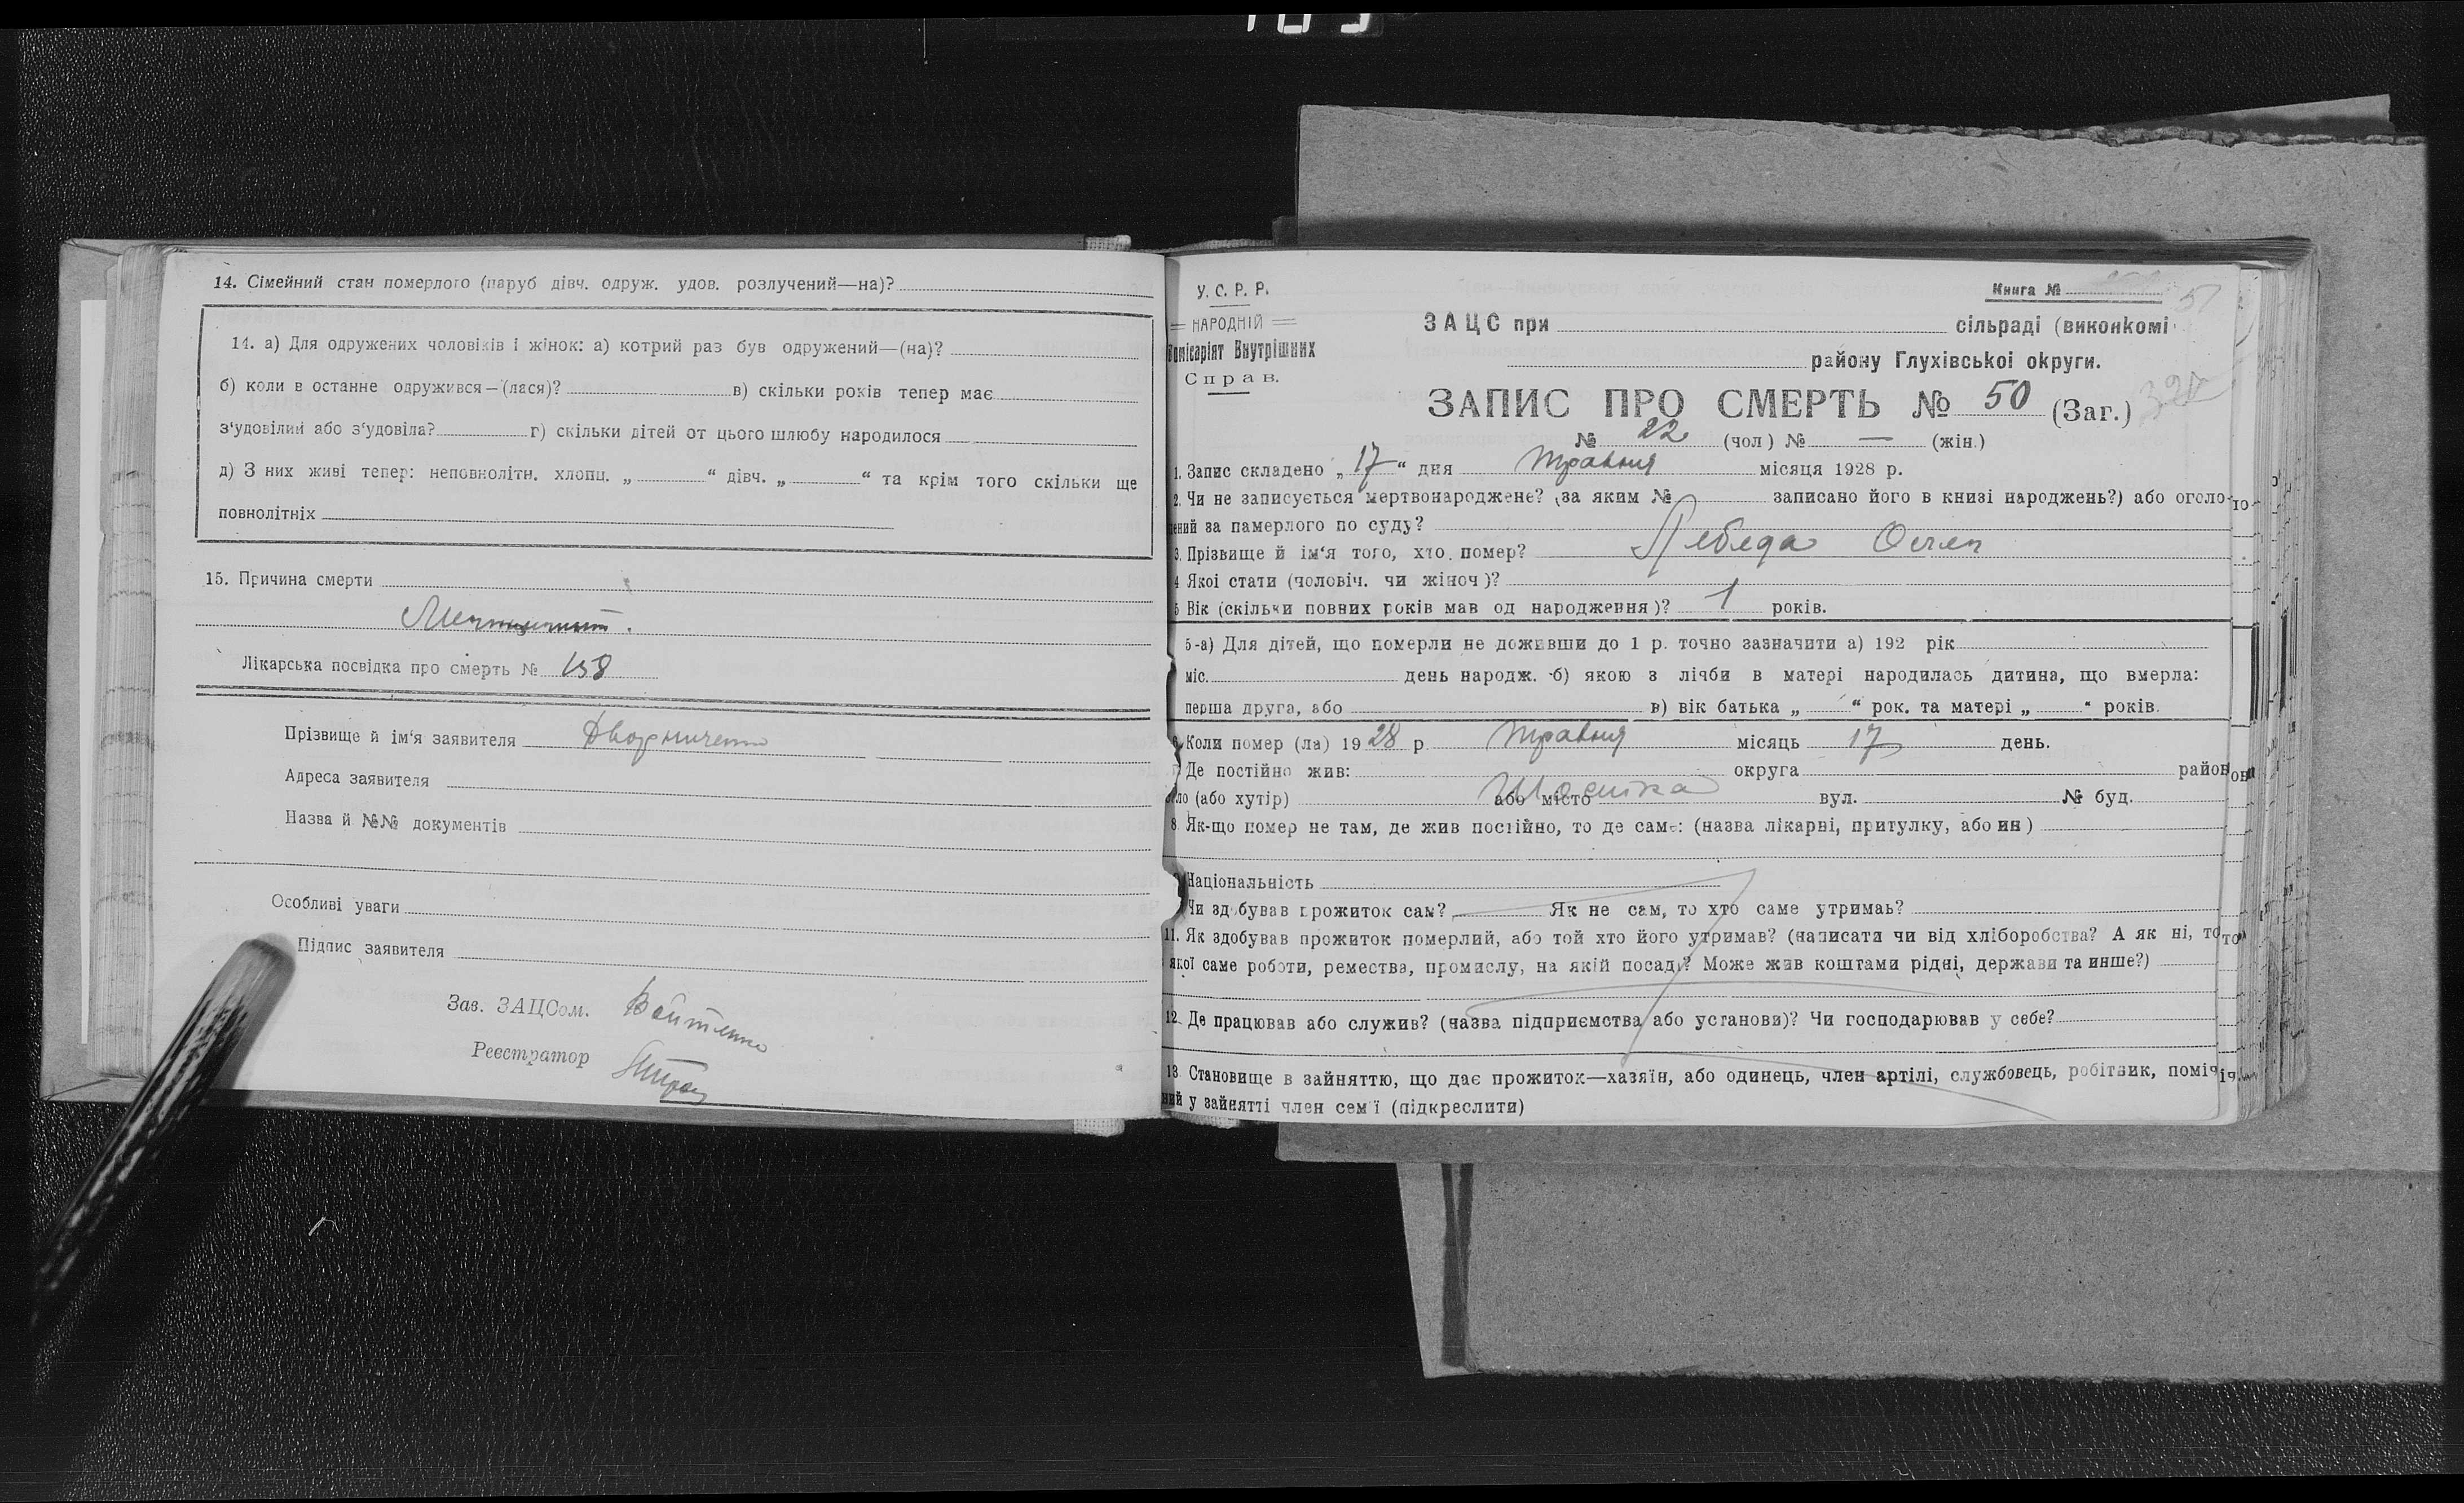 14. Сімейний стан померлого (паруб дівч. одруж. удов. розлучений—на)?
14. а) Для одружених чоловіків і жінок: а) котрий раз був одружений—(на)?
б) коли в останне одружився—(лася)? в) скільки років тепер має
з'удовілий або з'удовіла? г) скільки дітей от цього шлюбу народилося
д) З них живі тепер: неповнолітн. хлопц. „ “ дівч. „ “ та крім того скільки ще
повнолітніх
15. Причина смерти
Лікарська посвідка про смерть № 158
Прізвище й ім'я заявителя Дворниченко
Адреса заявителя
Назва й №№ документів
Особливі уваги
Підпис заявителя
Зав. ЗАЦСом. Войтенко
Реєстратор
У. С. Р. Р.
НАРОДНІЙ
Комісаріят Внутрішних
Справ.
Книга №
51
ЗАЦС при сільраді (виконкомі
району Глухівської округи.
ЗАПИС ПРО СМЕРТЬ № 50 (Заг.)
№ 22 (чол) № — (жін.)
1. Запис складено „17“ дня травня місяця 1928 р.
2. Чи не записується мертвонароджене? (за яким № записано його в книзі народжень?) або оголо-
ений за памерлого по суду?
3. Прізвище й ім'я того, хто помер? Лебеда Остап
4 Якоі стати (чоловіч. чи жіноч)?
5 Вік (скільки повних років мав од народження)? 1 років.
5-а) Для дітей, що померли не доживши до 1 р. точно зазначити а) 192 рік
міс. день народж. б) якою з лічби в матері народилась дитина, що вмерла:
перша друга, або в) вік батька „ “ рок. та матері „ “ років.
6 Коли помер (ла) 1928 р. травня місяць 17 день.
7. Де постійно жив: округа район
ело (або хутір) або місто Шостка вул. № буд.
8. Як-що помер не там, де жив постійно, то де саме: (назва лікарні, притулку, або ин)
Національність
Чи здобував прожиток сам? Як не сам, то хто саме утримаь?
11. Як здобував прожиток померлий, або той хто його утримав? (написати чи від хліборобства? А як ні, то
якої саме роботи, ремества, промислу, на якій посаді? Може жив коштами рідні, держави та инше?)
12. Де працював або служив? (назва підприємства або установи)? Чи господарював у себе?
13. Становище в зайняттю, що дає прожиток—хазяїн, або одинець, член артілі, службовець, робітник, поміч
ний у зайнятті член сем'ї (підкреслити)